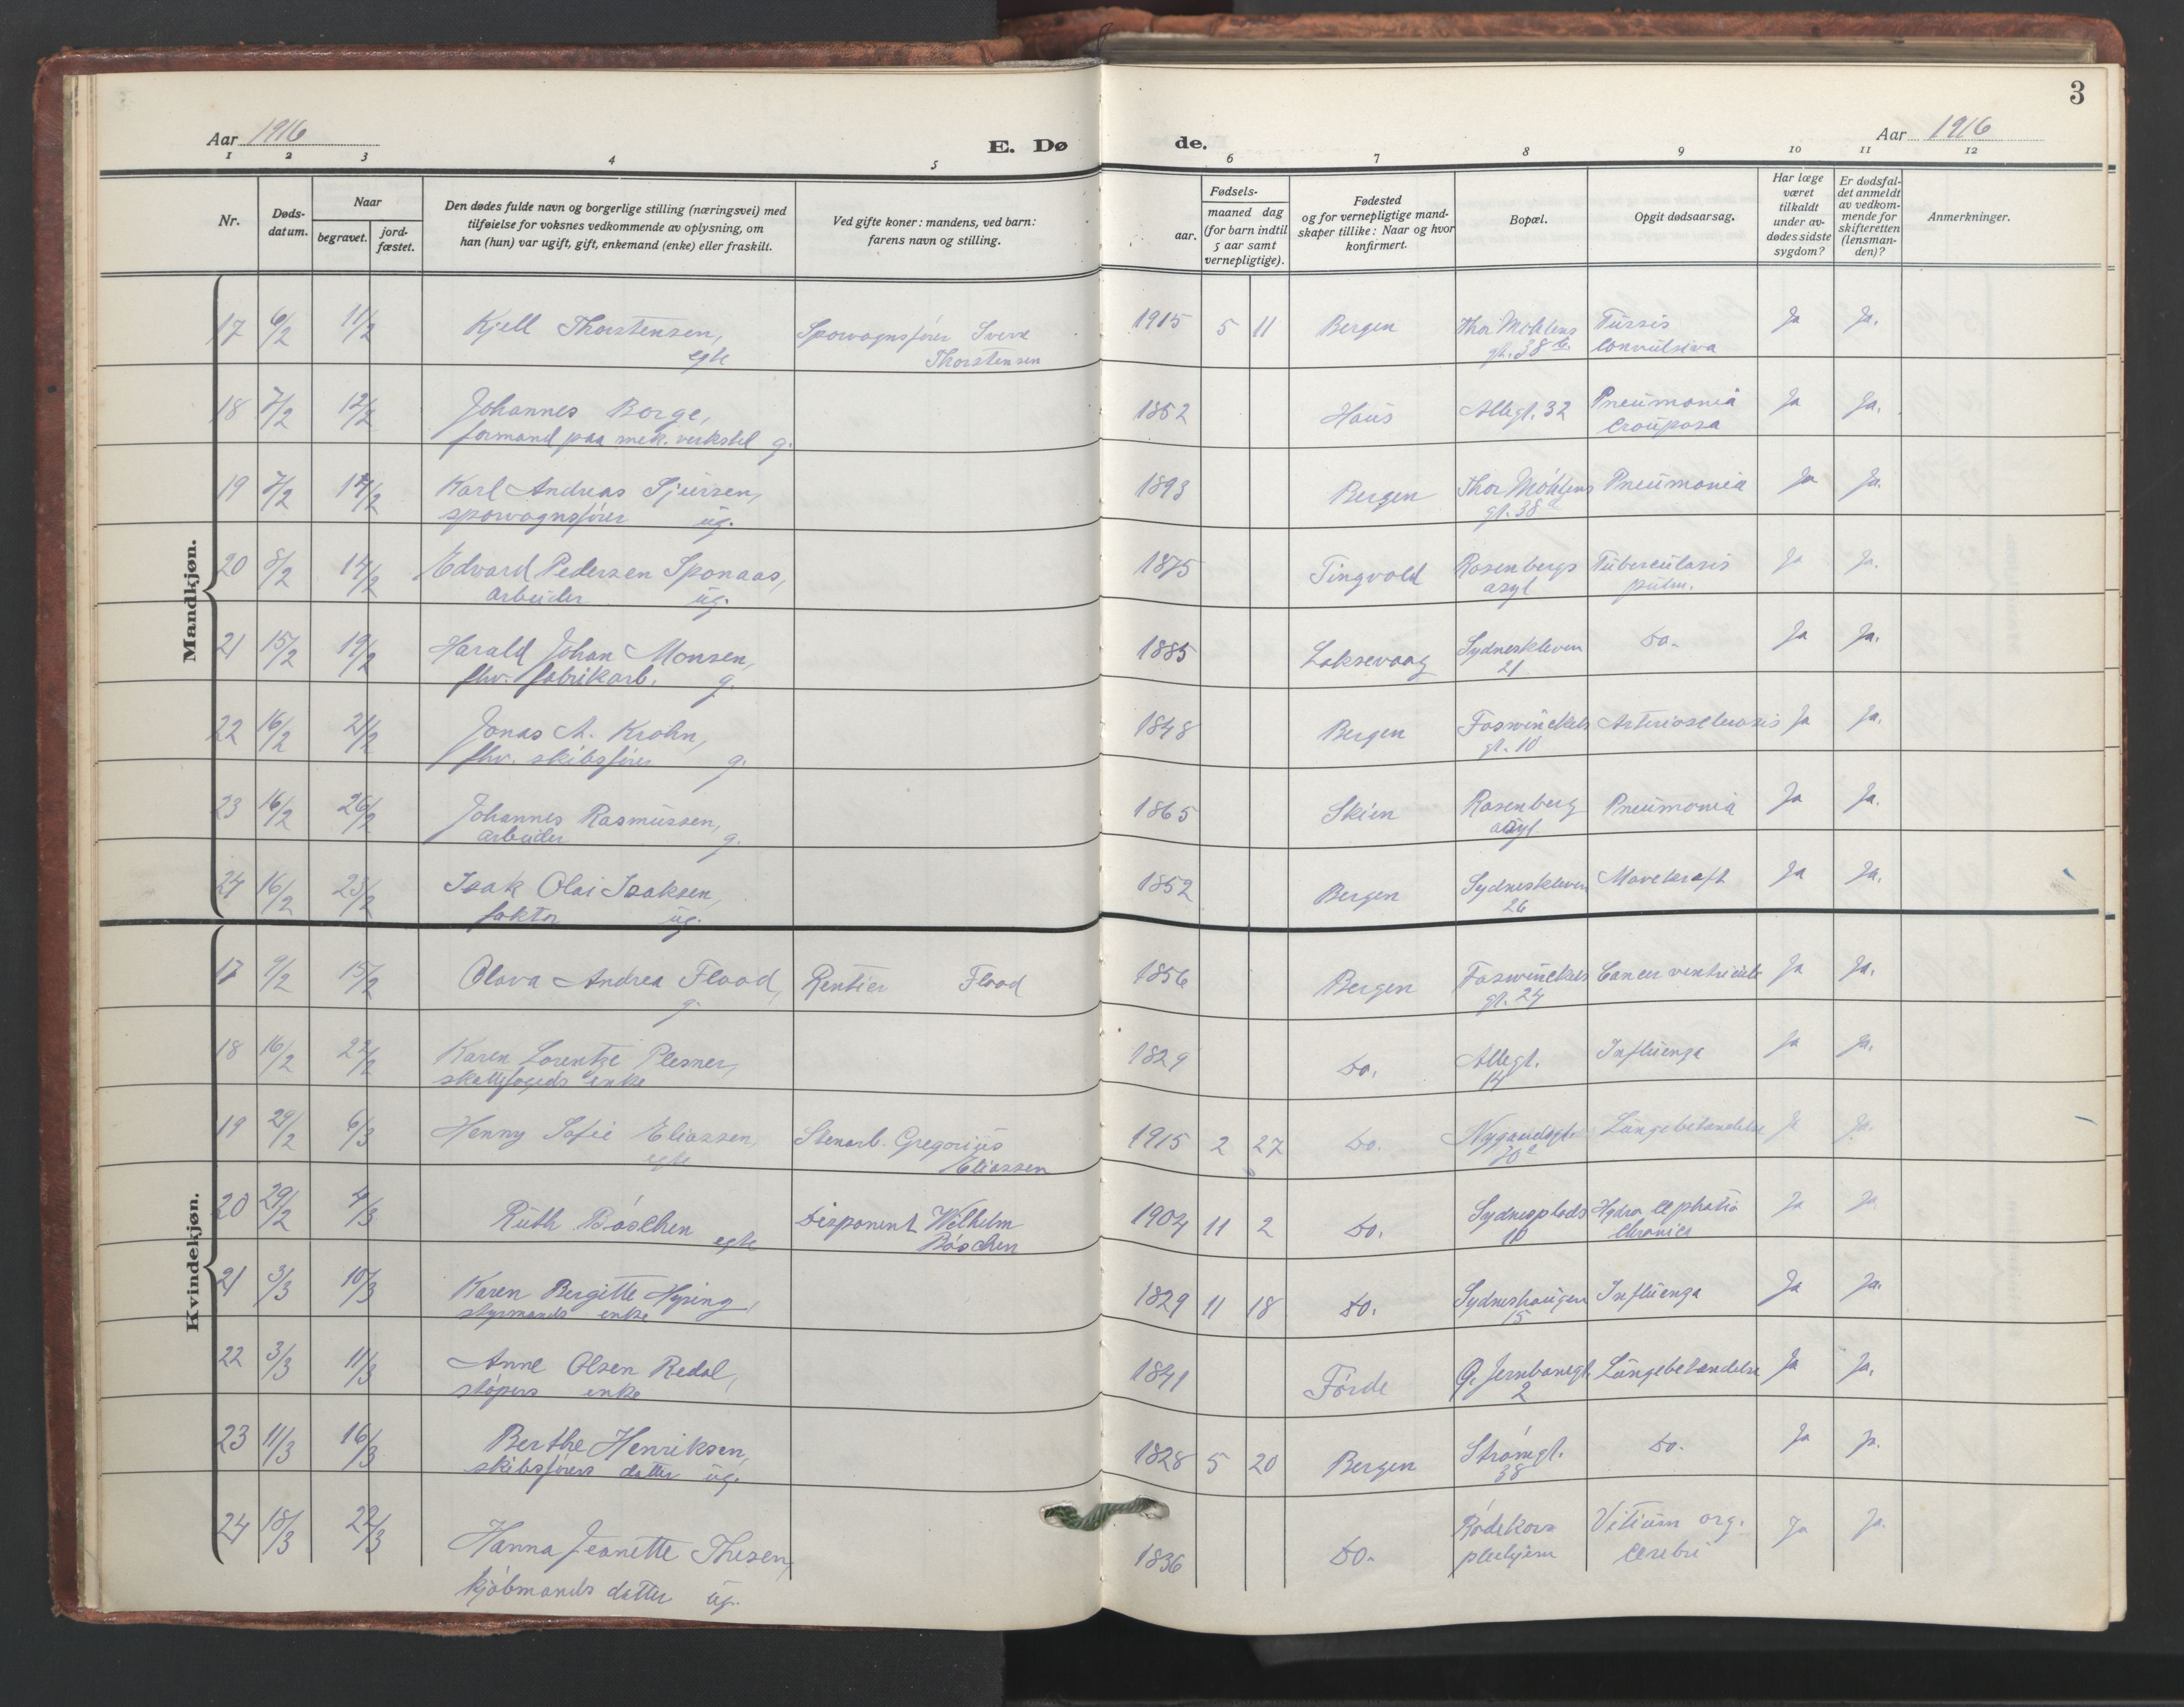 3
Aar 1916
E. Dø de.
Aar 1916
1 2 3 4 5 6 7 8 9 10 11 12
Nr.
Døds-
datum.
Naar
begravet.
jord-
fæstet.
Den dødes fulde navn og borgerlige stilling (næringsvei) med
tilføielse for voksnes vedkommende av oplysning, om
han (hun) var ugift, gift, enkemand (enke) eller fraskilt.
Ved gifte koner: mandens, ved barn:
farens navn og stilling.
Fødsels-
aar.
maaned dag
(for barn indtil
5 aar samt
vernepligtige).
Fødested
og for vernepligtige mand-
skaper tillike: Naar og hvor
konfirmert.
Bopæl.
Opgit dødsaarsag.
Har læge
været
tilkaldt
under av-
dødes sidste
sygdom?
Er dødsfal-
det anmeldt
av vedkom-
mende for
skifteretten
(lensman-
den)?
Anmerkninger.
Mandkjøn.
17 6/2 11/2 Kjell Thorstensen, Sporvognsfører Sverre 1915 5 11 Bergen Thor Møhlens Tussis Ja Ja.
egte Thorstensen gt. 38 b. convulsiva
18 7/2 12/2 Johannes Borge, 1852 Haus Allegt. 32 Pneumonia Ja Ja.
formand paa mek. verksted g. Crouposa
19 7/2 14/2 Karl Andreas Sjursen, 1893 Bergen Thor Møhlens Pneumonia Ja Ja.
sporvognsfører ug. gt. 38 a
20 8/2 14/2 Edvard Pedersen Sponaas, 1875 Tingvold Rosenbergs Tuberculosis Ja Ja.
arbeider ug. asyl pulm.
21 15/2 19/2 Harald Johan Monsen, 1885 Laksevaag Sydneskleven Do. Ja Ja.
fhv. fabrikarb. g. 21
22 16/2 21/2 Jonas A. Krohn, 1848 Bergen Foswinckels Arteriosclerosis Ja Ja.
fhv. skibsfører g. gt. 10
23 16/2 26/2 Johannes Rasmussen, 1865 Skien Rosenberg Pneumonia Ja Ja.
arbeider g. asyl
24 16/2 23/2 Isak Olai Isaksen, 1852 Bergen Sydneskleven Mavekraft Ja Ja.
faktor ug. 26
Kvindekjøn.
17 9/2 15/2 Olava Andrea Flood, Rentier Flood 1856 Bergen Foswinckels Cancer ventriculi Ja Ja.
g. gt. 24
18 16/2 22/2 Karen Lorentze Plesner, 1829 Do. Allegt. Influenza Ja Ja.
skattefogeds enke 14
19 29/2 6/3 Henny Sofie Eliassen, Stenarb. Gregorius 1915 2 27 Do. Nygaardsgt. Lungebetændelse Ja Ja.
egte Eliassen
20 29/2 4/3 Ruth Bøschen Disponent Wilhelm 1904 11 2 Do. Sydnesplads Ja Ja.
egte Bøschen 10 chronica
21 3/3 10/3 Karen Bergitte Hyring, 1829 11 18 Do. Sydneshaugen Influenza Ja Ja.
styrmands enke 15
22 3/3 11/3 Anne Olsen Redal, 1841 Førde Ø. Jernbanegt. Lungebetændelse Ja Ja.
støpers enke 2
23 11/3 16/3 Berthe Henriksen, 1828 5 20 Bergen Strømgt. Do. Ja Ja.
skibsførers datter ug. 38
24 18/3 22/3 Hanna Jeanette Thesen, 1836 Do. Rødekors Vitium org. Ja Ja.
kjøbmands datter ug. pleiehjem cerebri